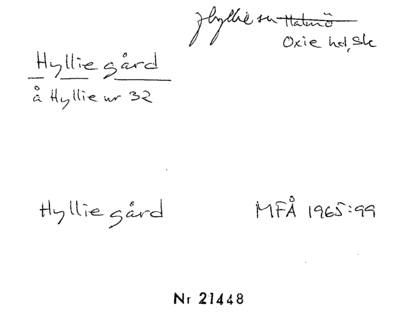 Hyllie sn Malmö
Oxie hd, Sk
Hyllie gård
å Hyllie nr 32
Hyllie gård MFÅ 1965:99
Nr 21448